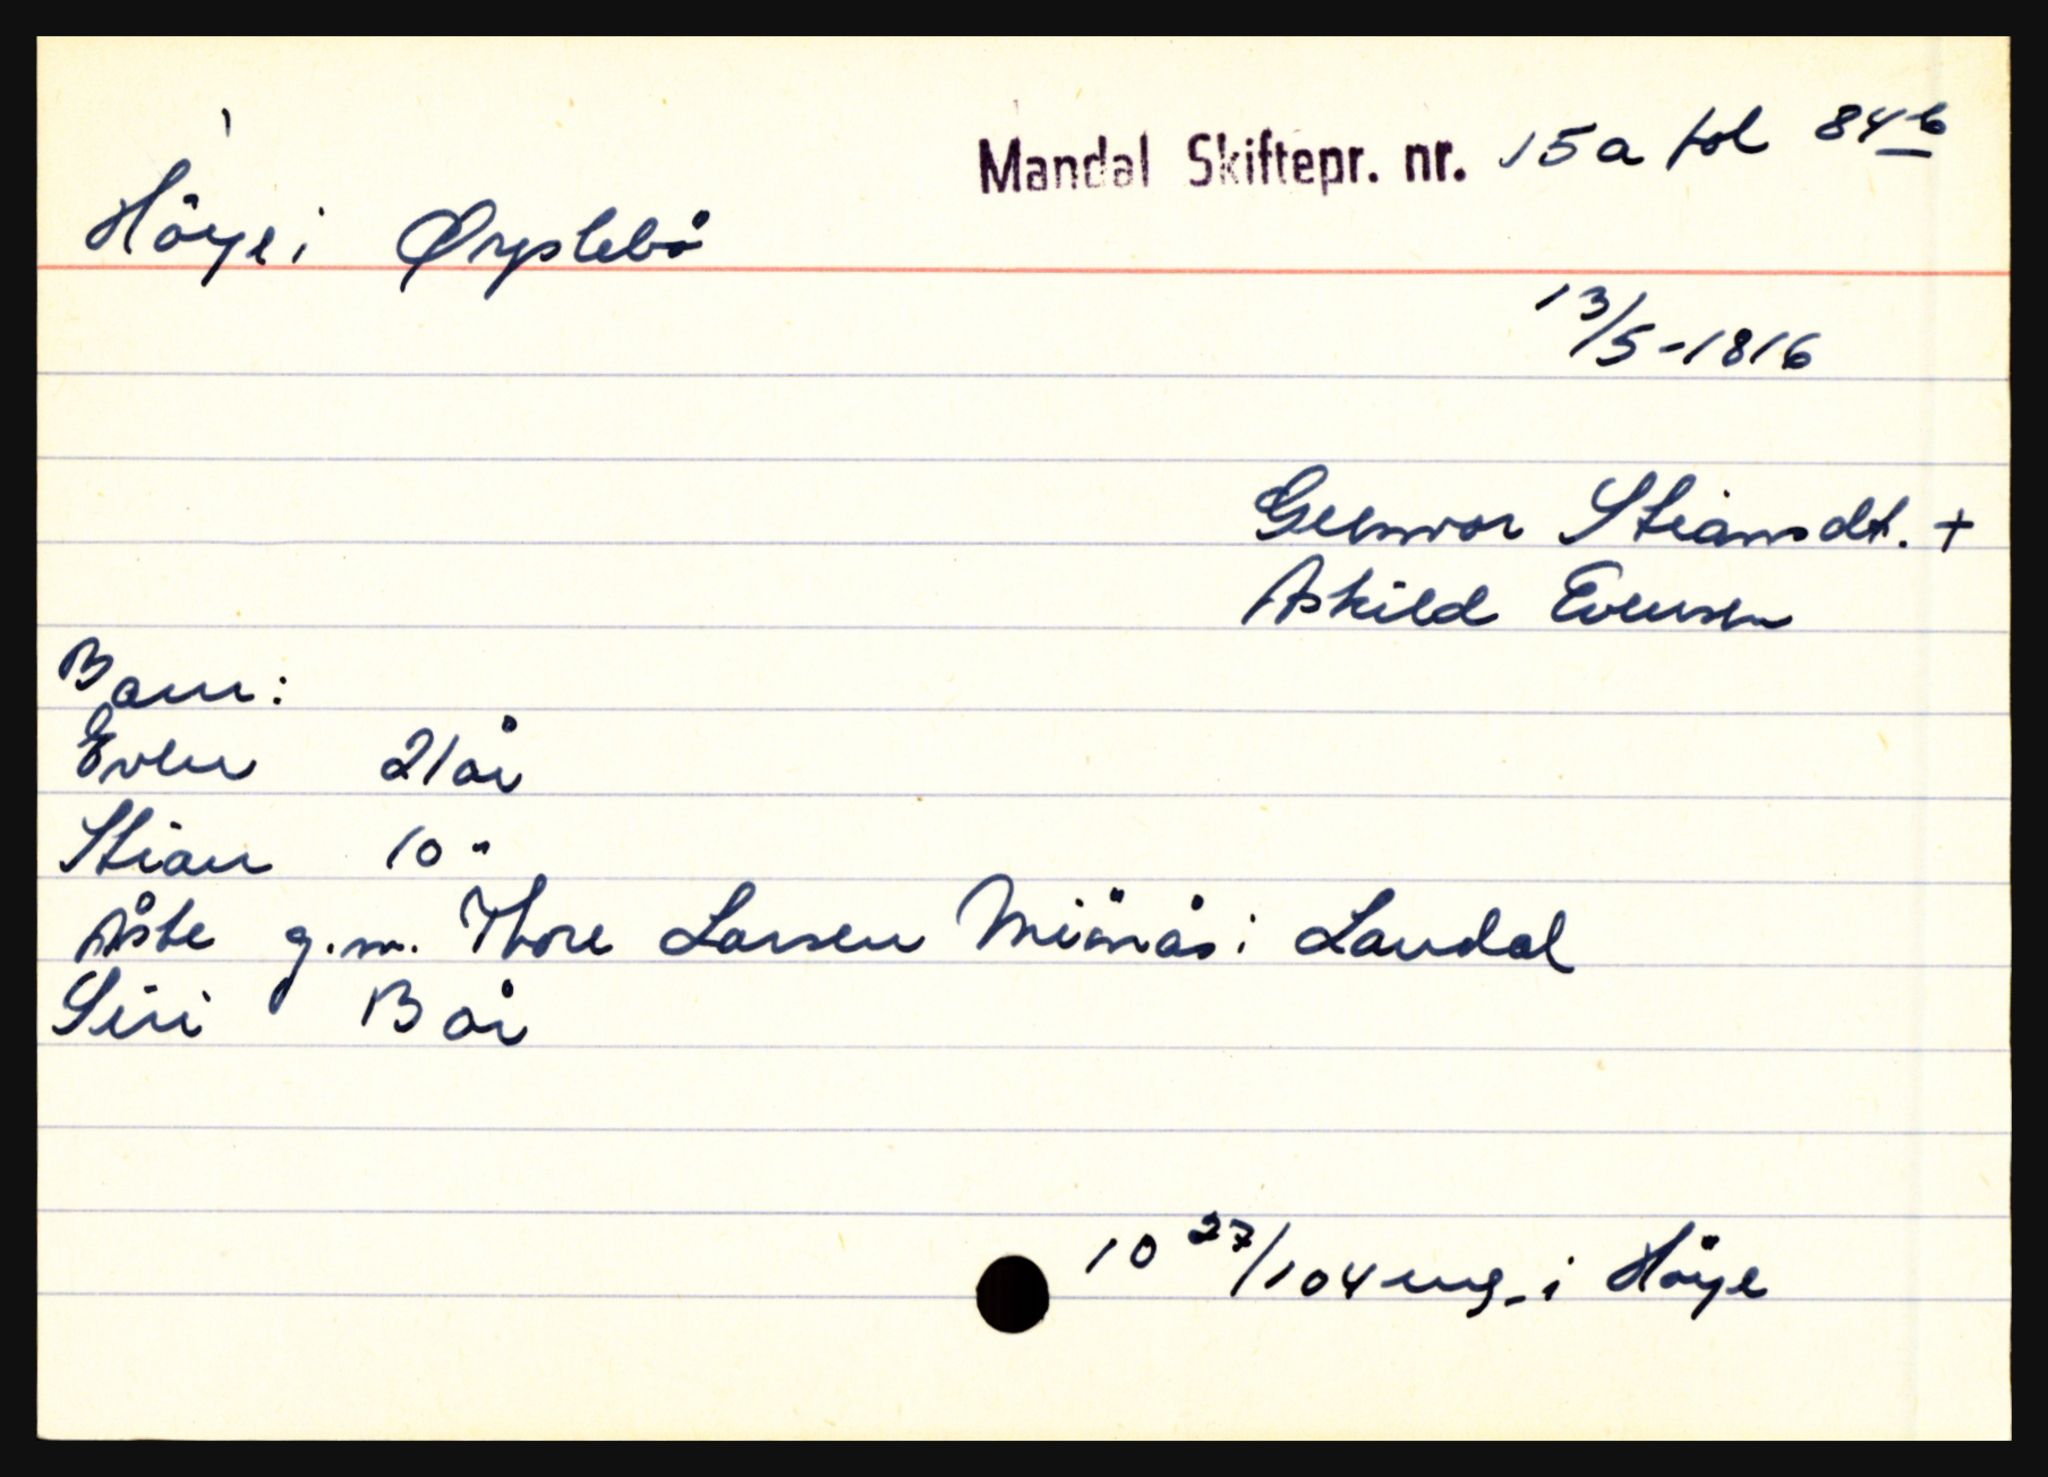 Mandal Skiftepr. nr. 15a fol 84b
Höye i Øyslebö
13/5-1816
Gunvor Stiansdt. +
Askild Evensen
Barn:
Even 21 år
Stian 10 "
Åste g.m. Thore Larsen Miönås i Laudal
Siri 13 år
10 27/104 mg. i Höye